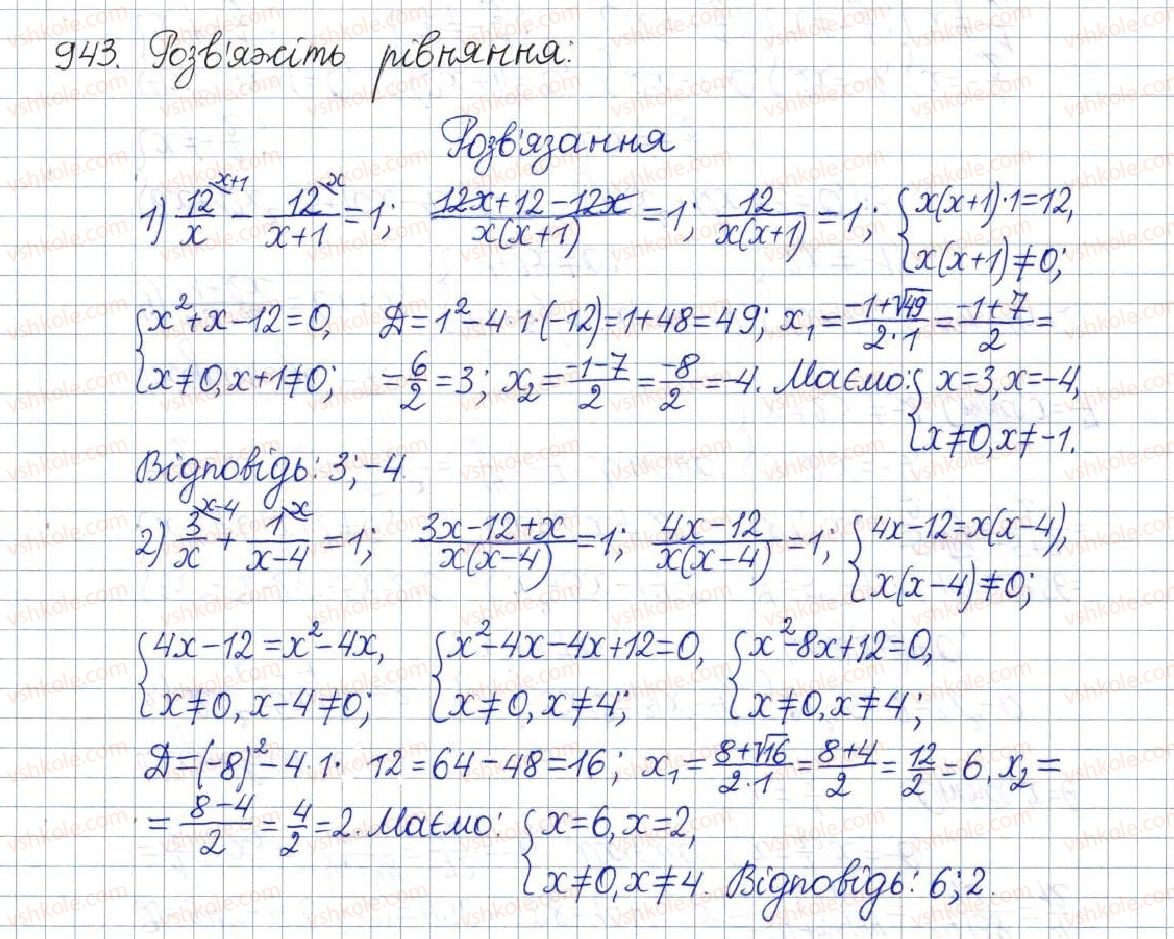 943. Розв'яжіть рівняння:
Розв'язання
1) 12/x ^x+1 - 12/(x+1) ^x = 1; (12x+12-12x)/(x(x+1)) = 1; 12/(x(x+1)) = 1; { x(x+1)·1=12, x(x+1)≠0;
{ x²+x-12=0, x≠0, x+1≠0; D=1²-4·1·(-12)=1+48=49; x₁=(-1+√49)/(2·1)=(-1+7)/2=
=6/2=3; x₂=(-1-7)/2=-8/2=-4. Маємо: { x=3, x=-4, x≠0, x≠-1.
Відповідь: 3; -4.
2) 3/x ^x-4 + 1/(x-4) ^x = 1; (3x-12+x)/(x(x-4)) = 1; (4x-12)/(x(x-4)) = 1; { 4x-12=x(x-4), x(x-4)≠0;
{ 4x-12=x²-4x, x≠0, x-4≠0; { x²-4x-4x+12=0, x≠0, x≠4; { x²-8x+12=0, x≠0, x≠4;
D=(-8)²-4·1· 12=64-48=16; x₁=(8+√16)/(2·1)=(8+4)/2=12/2=6, x₂=
=(8-4)/2=4/2=2. Маємо: { x=6, x=2, x≠0, x≠4. Відповідь: 6; 2.